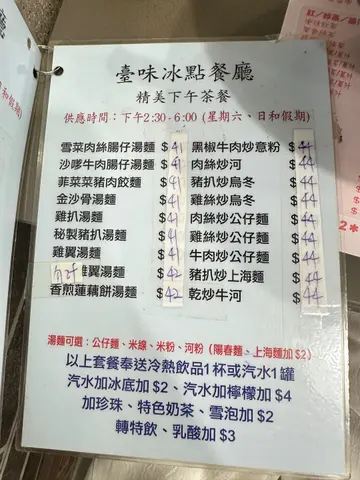 臺味冰點餐廳
精美下午茶餐
供應時間：下午2:30-6:00 (星期六、日和假期)
雪菜肉絲腸仔湯麵 $41
沙嗲牛肉腸仔湯麵 $41
菲菜菜豬肉餃麵 $41
金沙骨湯麵 $41
雞扒湯麵 $41
秘製豬扒湯麵 $41
雞翼湯麵 $41
雞翼湯麵 $42
香煎蓮藕餅湯麵 $42
黑椒牛肉炒意粉 $44
肉絲炒河 $44
豬扒炒烏冬 $44
雞絲炒烏冬 $44
肉絲炒公仔麵 $44
雞絲炒公仔麵 $44
牛肉炒公仔麵 $44
豬扒炒上海麵 $44
乾炒牛河 $44
湯麵可選：公仔麵、米線、米粉、河粉（陽春麵、上海麵加 $2）
以上套餐奉送冷熱飲品1杯或汽水1罐
汽水加冰底加 $2、汽水加檸檬加 $4
加珍珠、特色奶茶、雪泡加 $2
轉特飲、乳酸加 $3